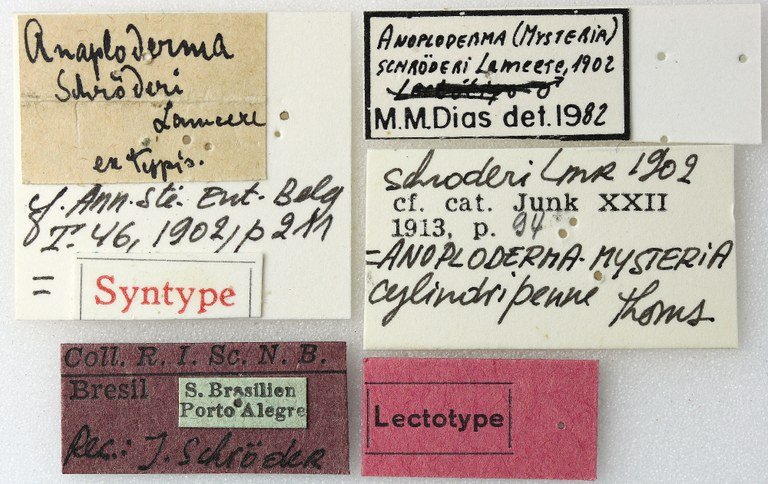 Anaploderma
Schröderi
Lameere
ex typis.
cf. Ann. Sté. Ent. Belg
T. 46, 1902, p 211
=
Syntype
ANOPLODERMA (MYSTERIA)
SCHRÖDERI Lameere, 1902
M.M.Dias det. 1982
schroderi Lmr 1902
cf. cat. Junk XXII
1913, p. 94
=ANOPLODERMA-MYSTERIA
cylindripenne Thoms.
Coll. R. I. Sc. N. B.
Bresil
S. Brasilien
Porto Alegre
Rec.: J. Schröder
Lectotype